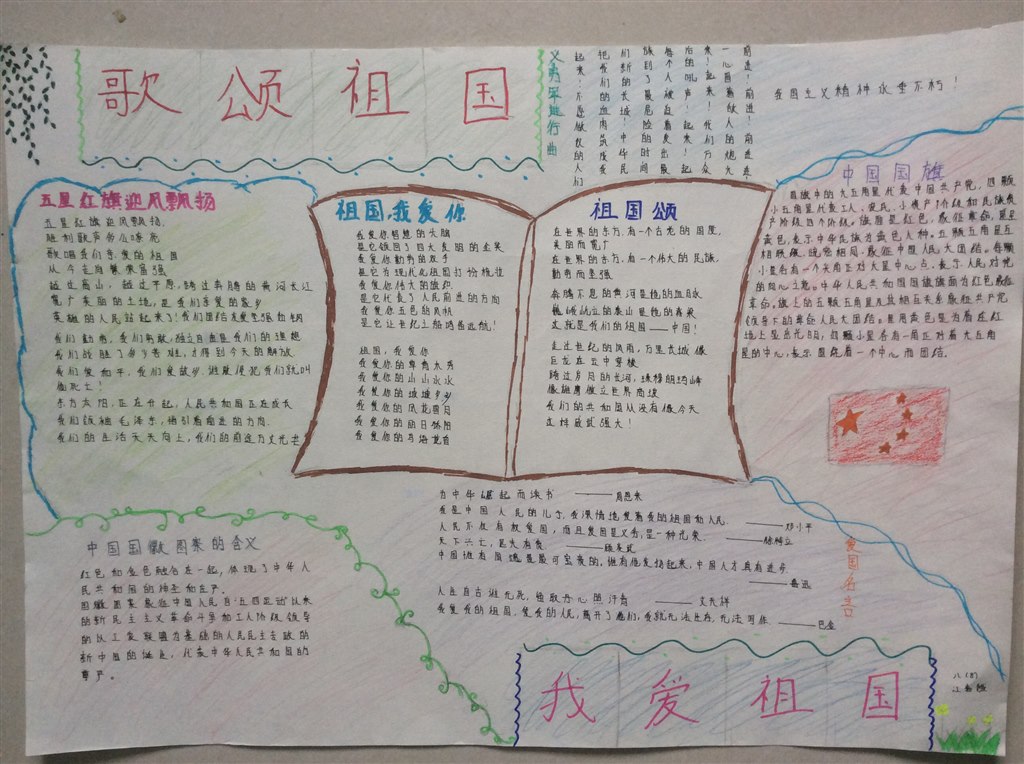 歌颂祖国
义勇军进行曲
我国主义精神永垂不朽！
五星红旗迎风飘扬
五星红旗迎风飘扬，
胜利歌声多么嘹亮
歌唱我们亲爱的祖国
从今走向繁荣富强
越过高山，越过平原，跨过奔腾的黄河长江
宽广美丽的土地，是我们亲爱的家乡
英雄的人民站起来了！我们团结友爱坚强如钢
我们勤劳，我们勇敢，独立自由是我们的理想
我们战胜了多少苦难，才得到今天的解放
我们爱和平，我们爱故乡，谁敢侵犯我们就叫
他死亡！
东方太阳，正在升起，人民共和国正在成长
我们领袖毛泽东，指引着前进的方向
我们的生活天天向上，我们的前途万丈光芒
祖国，我爱你
我爱你智慧的大脑
是它铸回了四大发明的金奖
我爱你勤劳的双手
是它为现代化祖国打扮梳妆
我爱你伟大的旗帜
是它代表了人民前进的方向
我爱你五色的风帆
是它让世纪之船鸣笛远航！
祖国，我爱你
我爱你的尊贵木秀
我爱你的山山水水
我爱你的城城乡乡
我爱你的风花雪月
我爱你的丽日骄阳
我爱你的鸟语花香
祖国颂
在世界的东方，有一个古老的国度，
美丽而宽广
在世界的东方，有一个伟大的民族，
勤劳而坚强
奔腾不息的黄河是他的血脉
巍峨屹立的泰山是他的脊梁
这就是我们的祖国——中国！
走过世纪的风雨，万里长城像
巨龙在云中穿梭
跨过岁月的长河，珠穆朗玛峰
像雄鹰傲立世界高坡
我们的共和国从没有像今天
这样威武强大！
中国国旗
国旗中的大五角星代表中国共产党，四颗
小五角星代表工人、农民、小资产阶级和民族资
产阶级四个阶级。旗面是红色，象征革命，星呈
黄色，表示中华民族为黄色人种。五颗五角星互
相联缀、疏密相间，象征中国人民大团结。每颗
小星各有一个尖角正对大星中心点，表示人民对党
的向心之意。中华人民共和国国旗旗面为红色象征
革命。旗上的五颗五角星及其相互关系象征共产党
领导下的革命人民大团结。星用黄色是为着在红
地上显出光明，四颗小星各有一角正对着大五角
星的中心，表示围绕着一个中心而团结。
为中华崛起而读书 ——周恩来
我是中国人民的儿子，我深情地爱着我的祖国和人民。 ——邓小平
人民不仅有权爱国，而且爱国是义务，是一种光荣。 ——徐特立
天下兴亡，匹夫有责 ——顾炎武
中国惟有国魂是最可宝贵的，惟有他发扬起来，中国人才真有进步。
——鲁迅
人生自古谁无死，留取丹心照汗青 ——文天祥
我爱我的祖国，爱我的人民，离开了她们，我就无法生存，无法写作 ——巴金
爱国名言
中国国徽图案的含义
红色和金色融合在一起，体现了中华人
民共和国的神圣和庄严。
国徽图案象征中国人民自“五四运动”以来
的新民主主义革命斗争和工人阶级领导
的以工农联盟为基础的人民民主专政的
新中国的诞生，代表中华人民共和国的
尊严。
我爱祖国
八(8)